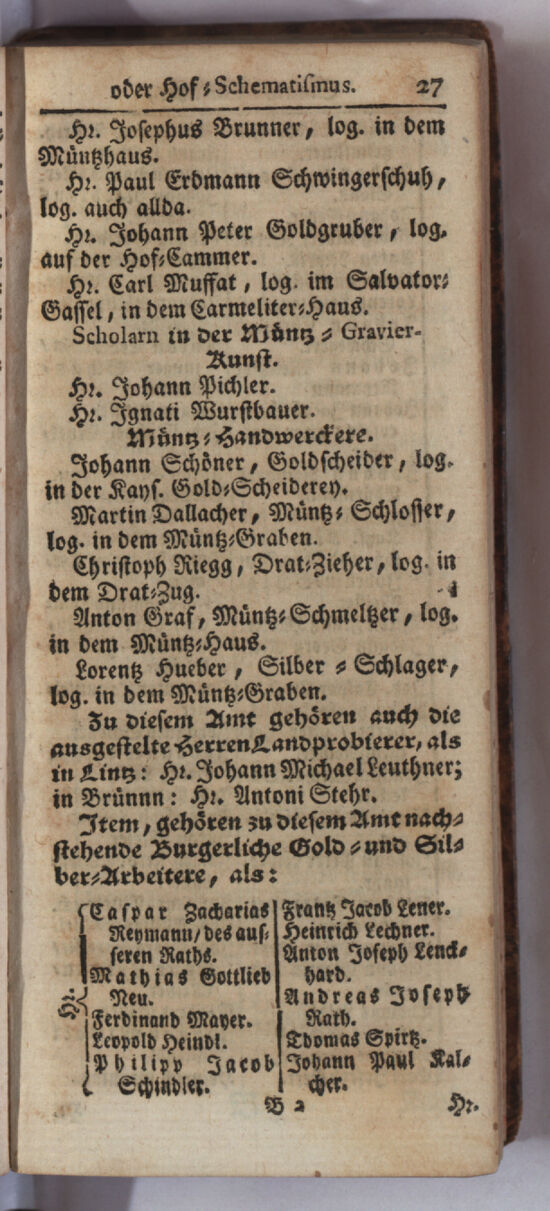 oder Hof⸗Schematismus. 27
Hr. Josephus Brunner, log. in dem
Müntzhaus.
Hr. Paul Erdmann Schwingerschuh,
log. auch allda.
Hr. Johann Peter Goldgruber, log.
auf der Hof⸗Cammer.
Hr. Carl Muffat, log. im Salvator⸗
Gassel, in dem Carmeliter⸗Haus.
Scholarn in der Müntz⸗Gravier-
Kunst.
Hr. Johann Pichler.
Hr. Ignati Wurstbauer.
Müntz⸗Handwerckere.
Johann Schöner, Goldscheider, log.
in der Kays. Gold⸗Scheiderey.
Martin Dallacher, Müntz⸗Schlosser,
log. in dem Müntz⸗Graben.
Christoph Riegg, Drat⸗Zieher, log. in
dem Drat⸗Zug.
Anton Graf, Müntz⸗Schmeltzer, log.
in dem Müntz⸗Haus.
Lorentz Hueber, Silber⸗Schlager,
log. in dem Müntz⸗Graben.
Zu diesem Amt gehören auch die
ausgestelte Herren Landprobierer, als
in Lintz: Hr. Johann Michael Leuthner;
in Brünnn: Hr. Antoni Stehr.
Item, gehören zu diesem Amt nach⸗
stehende Burgerliche Gold⸗und Sil⸗
ber⸗Arbeitere, als:
Hr.
Caspar Zacharias
Reymann/ des aus⸗
seren Raths.
Mathias Gottlieb
Neu.
Ferdinand Mayer.
Leopold Heindl.
Philipp Jacob
Schindler.
Frantz Jacob Lener.
Heinrich Lechner.
Anton Joseph Lenck⸗
hard.
Andreas Joseph
Rath.
Thomas Spirtz.
Johann Paul Kal⸗
cher.
B 2 Hr.